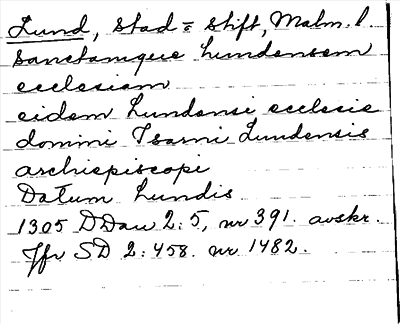 Lund, Stad = Stift, Malm. l
Sanctamque Lundensem
ecclesiam
eidem Lundensi ecclesie
domini Isarni Lundensis
archiepiscopi
Datum Lundis
1305 DDan 2:5, nr 391. avskr.
Jfr SD 2:458. nr 1482.